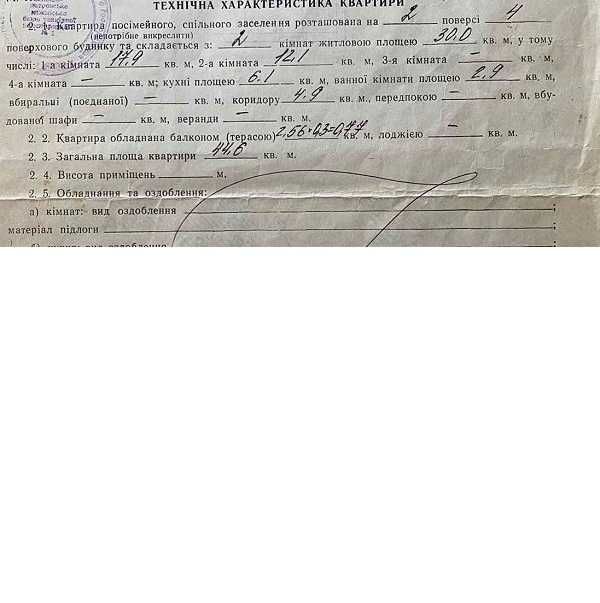 ТЕХНІЧНА ХАРАКТЕРИСТИКА КВАРТИРИ
2. 1. Квартира посімейного, спільного заселення розташована на 2 поверсі 4
(непотрібне викреслити)
поверхового будинку та складається з: 2 кімнат житловою площею 30.0 кв. м, у тому
числі: 1-а кімната 17.9 кв. м, 2-а кімната 12.1 кв. м, 3-я кімната — кв. м,
4-а кімната — кв. м; кухні площею 6.1 кв. м, ванної кімнати площею 2.9 кв. м,
вбиральні (поєднаної) — кв. м, коридору 4.9 кв. м., передпокою — кв. м, вбу-
дованої шафи — кв. м, веранди — кв. м.
2. 2. Квартира обладнана балконом (терасою) 2,56×0,3=0,77 кв. м, лоджією — кв. м.
2. 3. Загальна площа квартири 44.6 кв. м.
2. 4. Висота приміщень м.
2. 5. Обладнання та оздоблення:
а) кімнат: вид оздоблення ;
матеріал підлоги ;